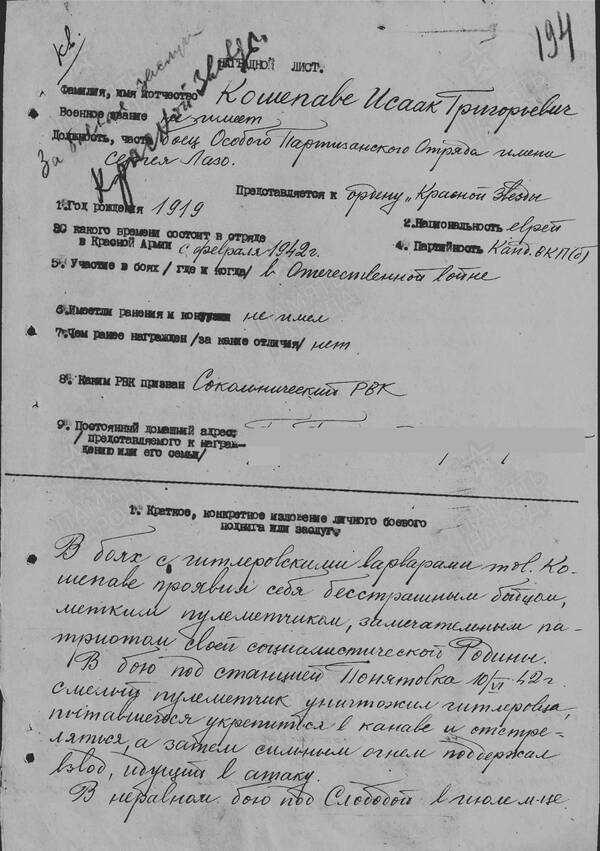 Кв.
194
За боевые заслуги
Красной Звезды.
НАГРАДНОЙ ЛИСТ.
Фамилия, имя и отчество Кошепаве Исаак Григорьевич
Военное звание не имеет
Должность, часть Боец Особого Партизанского Отряда имени
Сергея Лазо.
Представляется к ордену „Красной Звезды
1.Год рождения 1919
2.Национальность еврей
3С какого времени состоит в отряде
в Красной Армии с февраля 1942 г.
4. Партийность Канд. ВКП(б)
5. Участие в боях /где и когда/ в Отечественной войне
6.Имеет ли ранения и контузии не имел
7.Чем ранее награжден /за какие отличия/ нет
8. Каким РВК призван Сокольнический РВК
9. Постоянный домашний адрес:
/представляемого к награж-
дению или его семьи/
1. Краткое, конкретное изложение личного боевого
подвига или заслуг.
В боях с гитлеровскими варварами тов. Ко-
шепаве проявил себя бесстрашным бойцом,
метким пулеметчиком, замечательным па-
триотом своей социалистической Родины.
В бою под станцией Понятовка 10/VI 42 г.
смелый пулеметчик уничтожил гитлеровца,
пытавшегося укрепиться в канаве и отстре-
ляться, а затем сильным огнем поддержал
взвод, идущий в атаку.
В неравном бою под Слободой в июле м-це